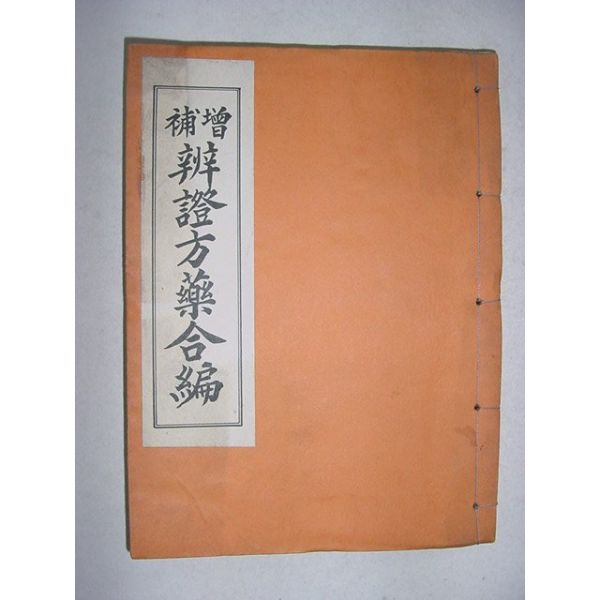 增補
辨證方藥合編